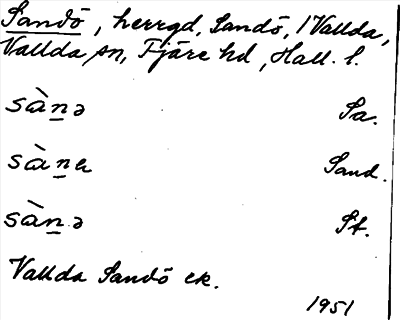 Sandö, herrgd, Sandö, 1 Vallda,
Vallda sn, Fjäre hd, Hall. l.
sàn̲ə Sa.
sàn̲ɐ Sand.
sàn̲ə St.
Vallda Sandö ek.
1951